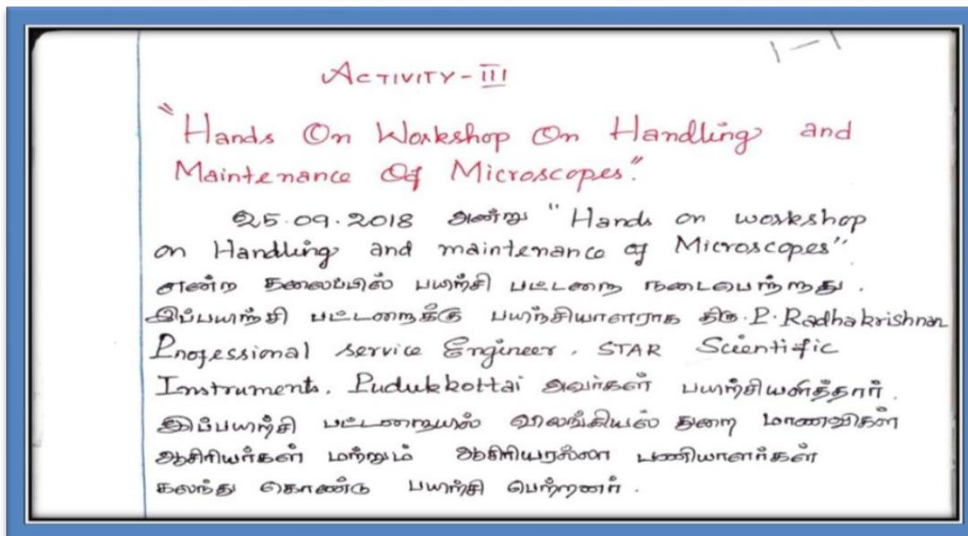 ACTIVITY - III
"Hands On Workshop On Handling and
Maintenance Of Microscopes."
25.09.2018 அன்று "Hands on workshop
on Handling and maintenance of Microscopes"
என்ற தலைப்பில் பயிற்சி பட்டறை நடைபெற்றது.
இப்பயிற்சி பட்டறைக்கு பயிற்சியாளராக திரு. P. Radhakrishnan
Professional service Engineer. STAR Scientific
Instruments. Pudukkottai அவர்கள் பயிற்சியளித்தார்.
இப்பயிற்சி பட்டறையில் விலங்கியல் துறை மாணவிகள்
ஆசிரியர்கள் மற்றும் ஆசிரியரல்லா பணியாளர்கள்
கலந்து கொண்டு பயிற்சி பெற்றனர்.